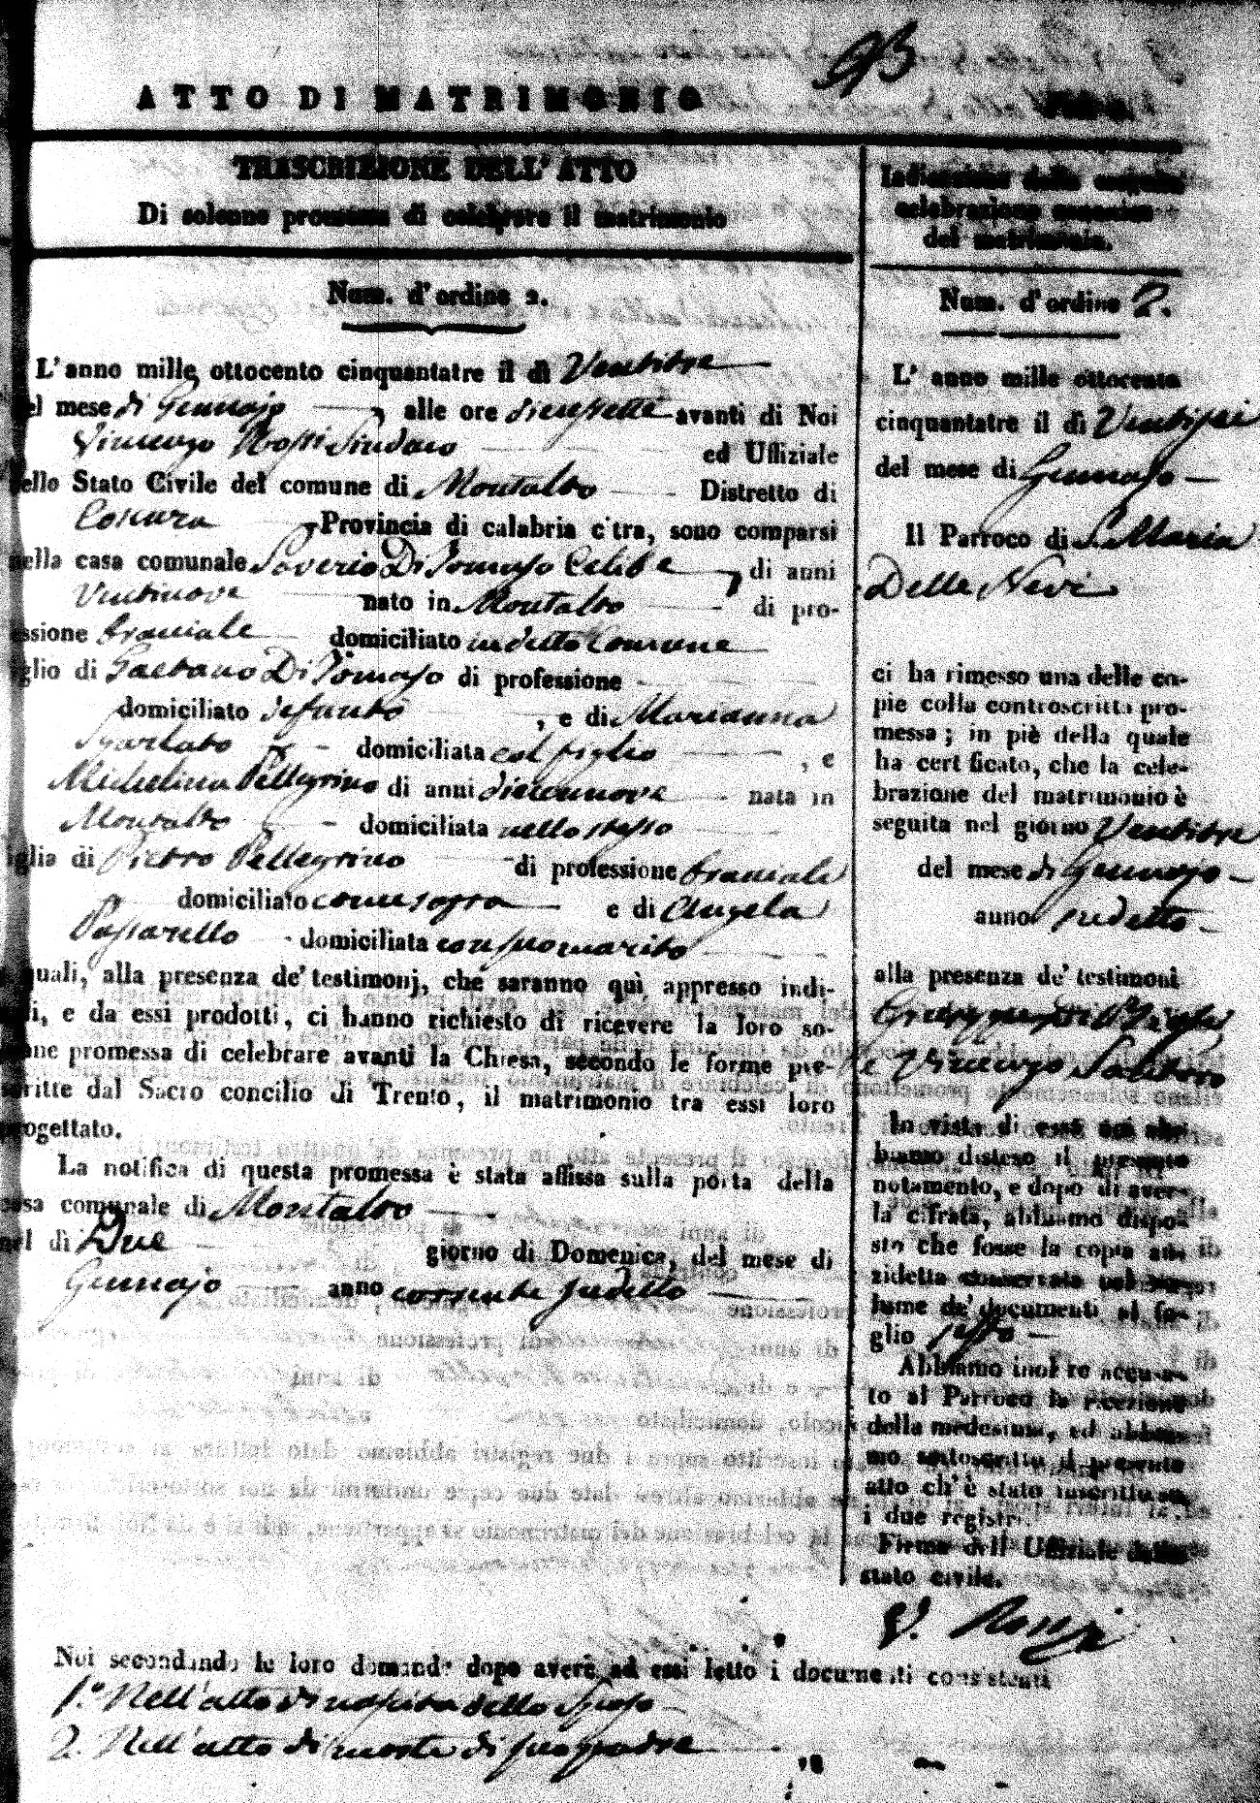 93
ATTO DI MATRIMONIO
TRASCRIZIONE DELL' ATTO
Di solenne promessa di celebrare il matrimonio
Num. d'ordine 2.
L'anno mille ottocento cinquantatre il di Ventitre
el mese di Gennajo alle ore diecisette avanti di Noi
Vincenzo Rossi Sindaco ed Uffiziale
ello Stato Civile del comune di Montalto Distretto di
Cosenza Provincia di calabria citra, sono comparsi
nella casa comunale Saverio Di Tomaso Celibe di anni
Ventinove nato in Montalto di pro-
essione bracciale domiciliato in detto Comune
iglio di Gaetano Di Tomaso di professione
domiciliato defunto, e di Marianna
Scarlato domiciliata col figlio, e
Michelina Pellegrino di anni diecennove nata in
Montalto domiciliata nello stesso
iglia di Pietro Pellegrino di professione bracciale
domiciliato come sopra e di Angela
Passarello domiciliata con suo marito
quali, alla presenza de' testimonj, che saranno quì appresso indi-
i, e da essi prodotti, ci hanno richiesto di ricevere la loro so-
nne promessa di celebrare avanti la Chiesa, secondo le forme pre-
critte dal Sacro concilio di Trento, il matrimonio tra essi loro
rogettato.
La notifica di questa promessa è stata affissa sulla porta della
casa comunale di Montalto
nel di Due giorno di Domenica, del mese di
Gennajo anno corrente sudetto
Indicazione della seguita
celebrazione canonica
del matrimonio.
Num. d'ordine 2.
L' anno mille ottocento
cinquantatre il dì Ventisei
del mese di Gennajo
Il Parroco di S. Maria
Delle Nevi
ci ha rimesso una delle co-
pie colla controscritta pro-
messa; in piè della quale
ha certificato, che la cele-
brazione del matrimonio è
seguita nel giorno Ventitre
del mese di Gennajo
anno sudetto
alla presenza de' testimoni
Giuseppe
e Vincenzo
In vista di essa noi ab-
biamo disteso il presente
notamento, e dopo di aver-
la cifrata, abbiamo dispo-
sto che fosse la copia an-
zidetta conservata nel vo-
lume de' documenti al fo-
glio
Abbiamo inoltre accusa-
to al Parroco la ricezione
della medesima, ed abbia-
mo sottoscritto il presente
atto ch'è stato inscritto su
i due registri.
Firma dell' Uffiziale dello
stato civile.
V. Rossi
Noi secondando le loro domande dopo avere ad essi letto i documenti consistenti
1.º Nell'atto di nascita dello Sposo
2. Nell'atto di morte di suo padre